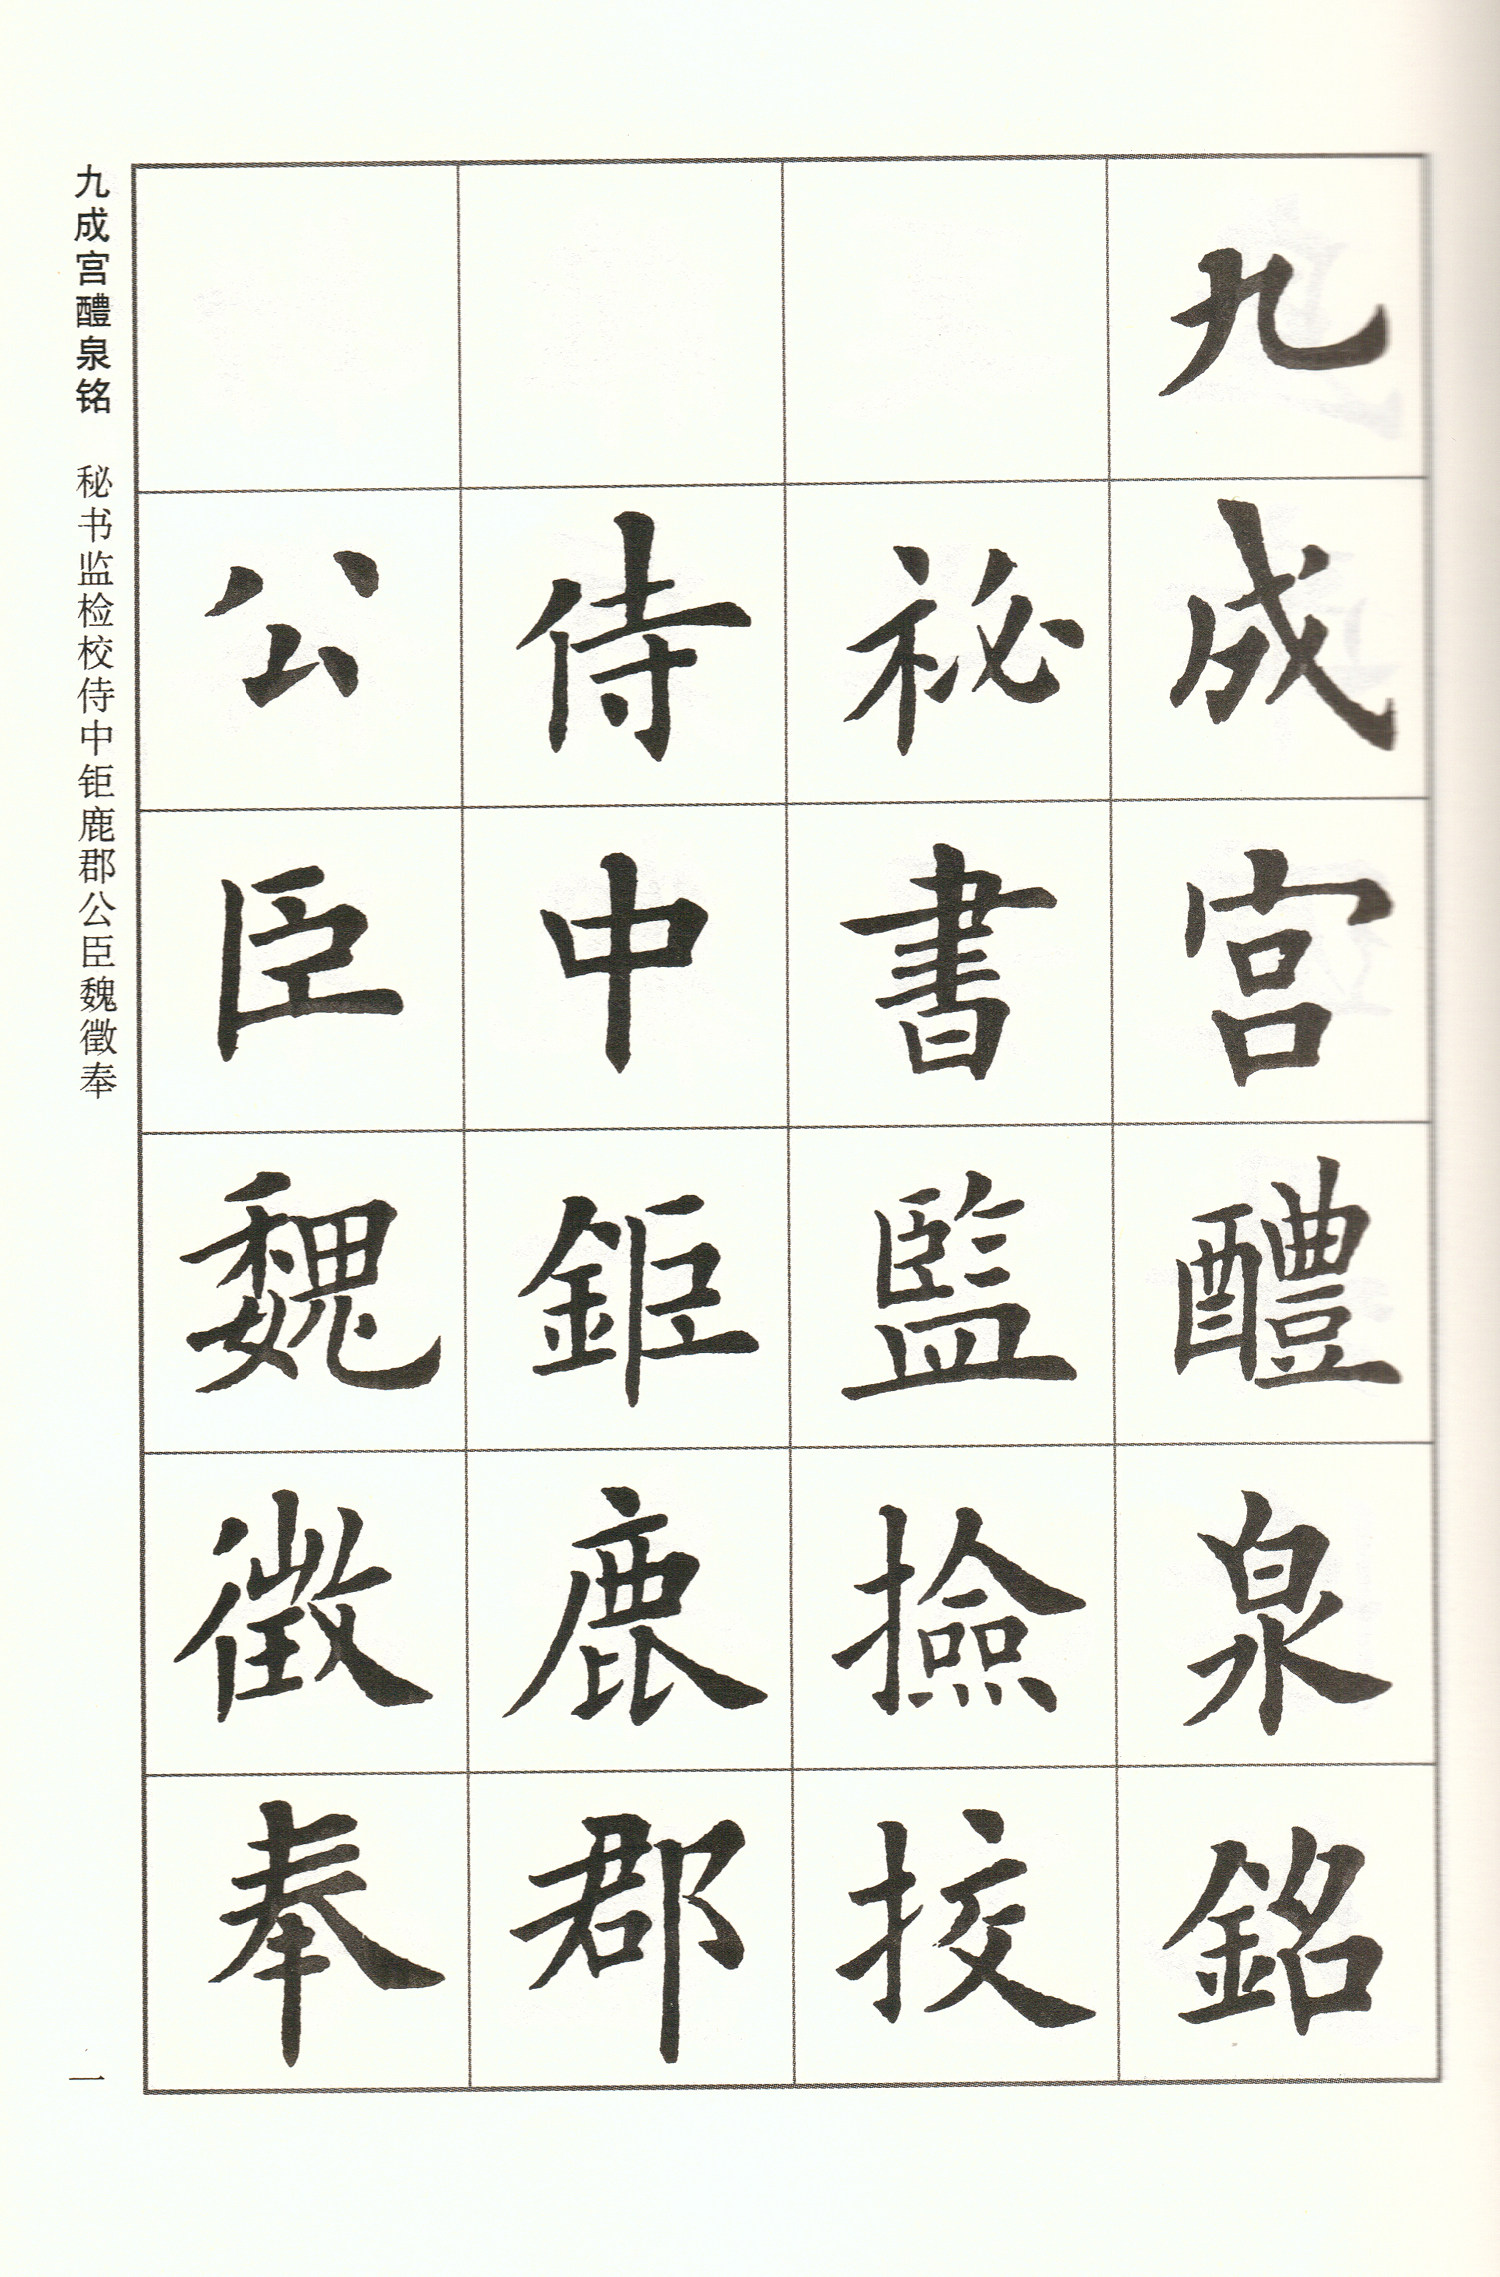 九成宮醴泉銘
祕書監撿挍
侍中鉅鹿郡
公臣魏徵奉
九成宫醴泉铭 秘书监检校侍中钜鹿郡公臣魏徵奉
一